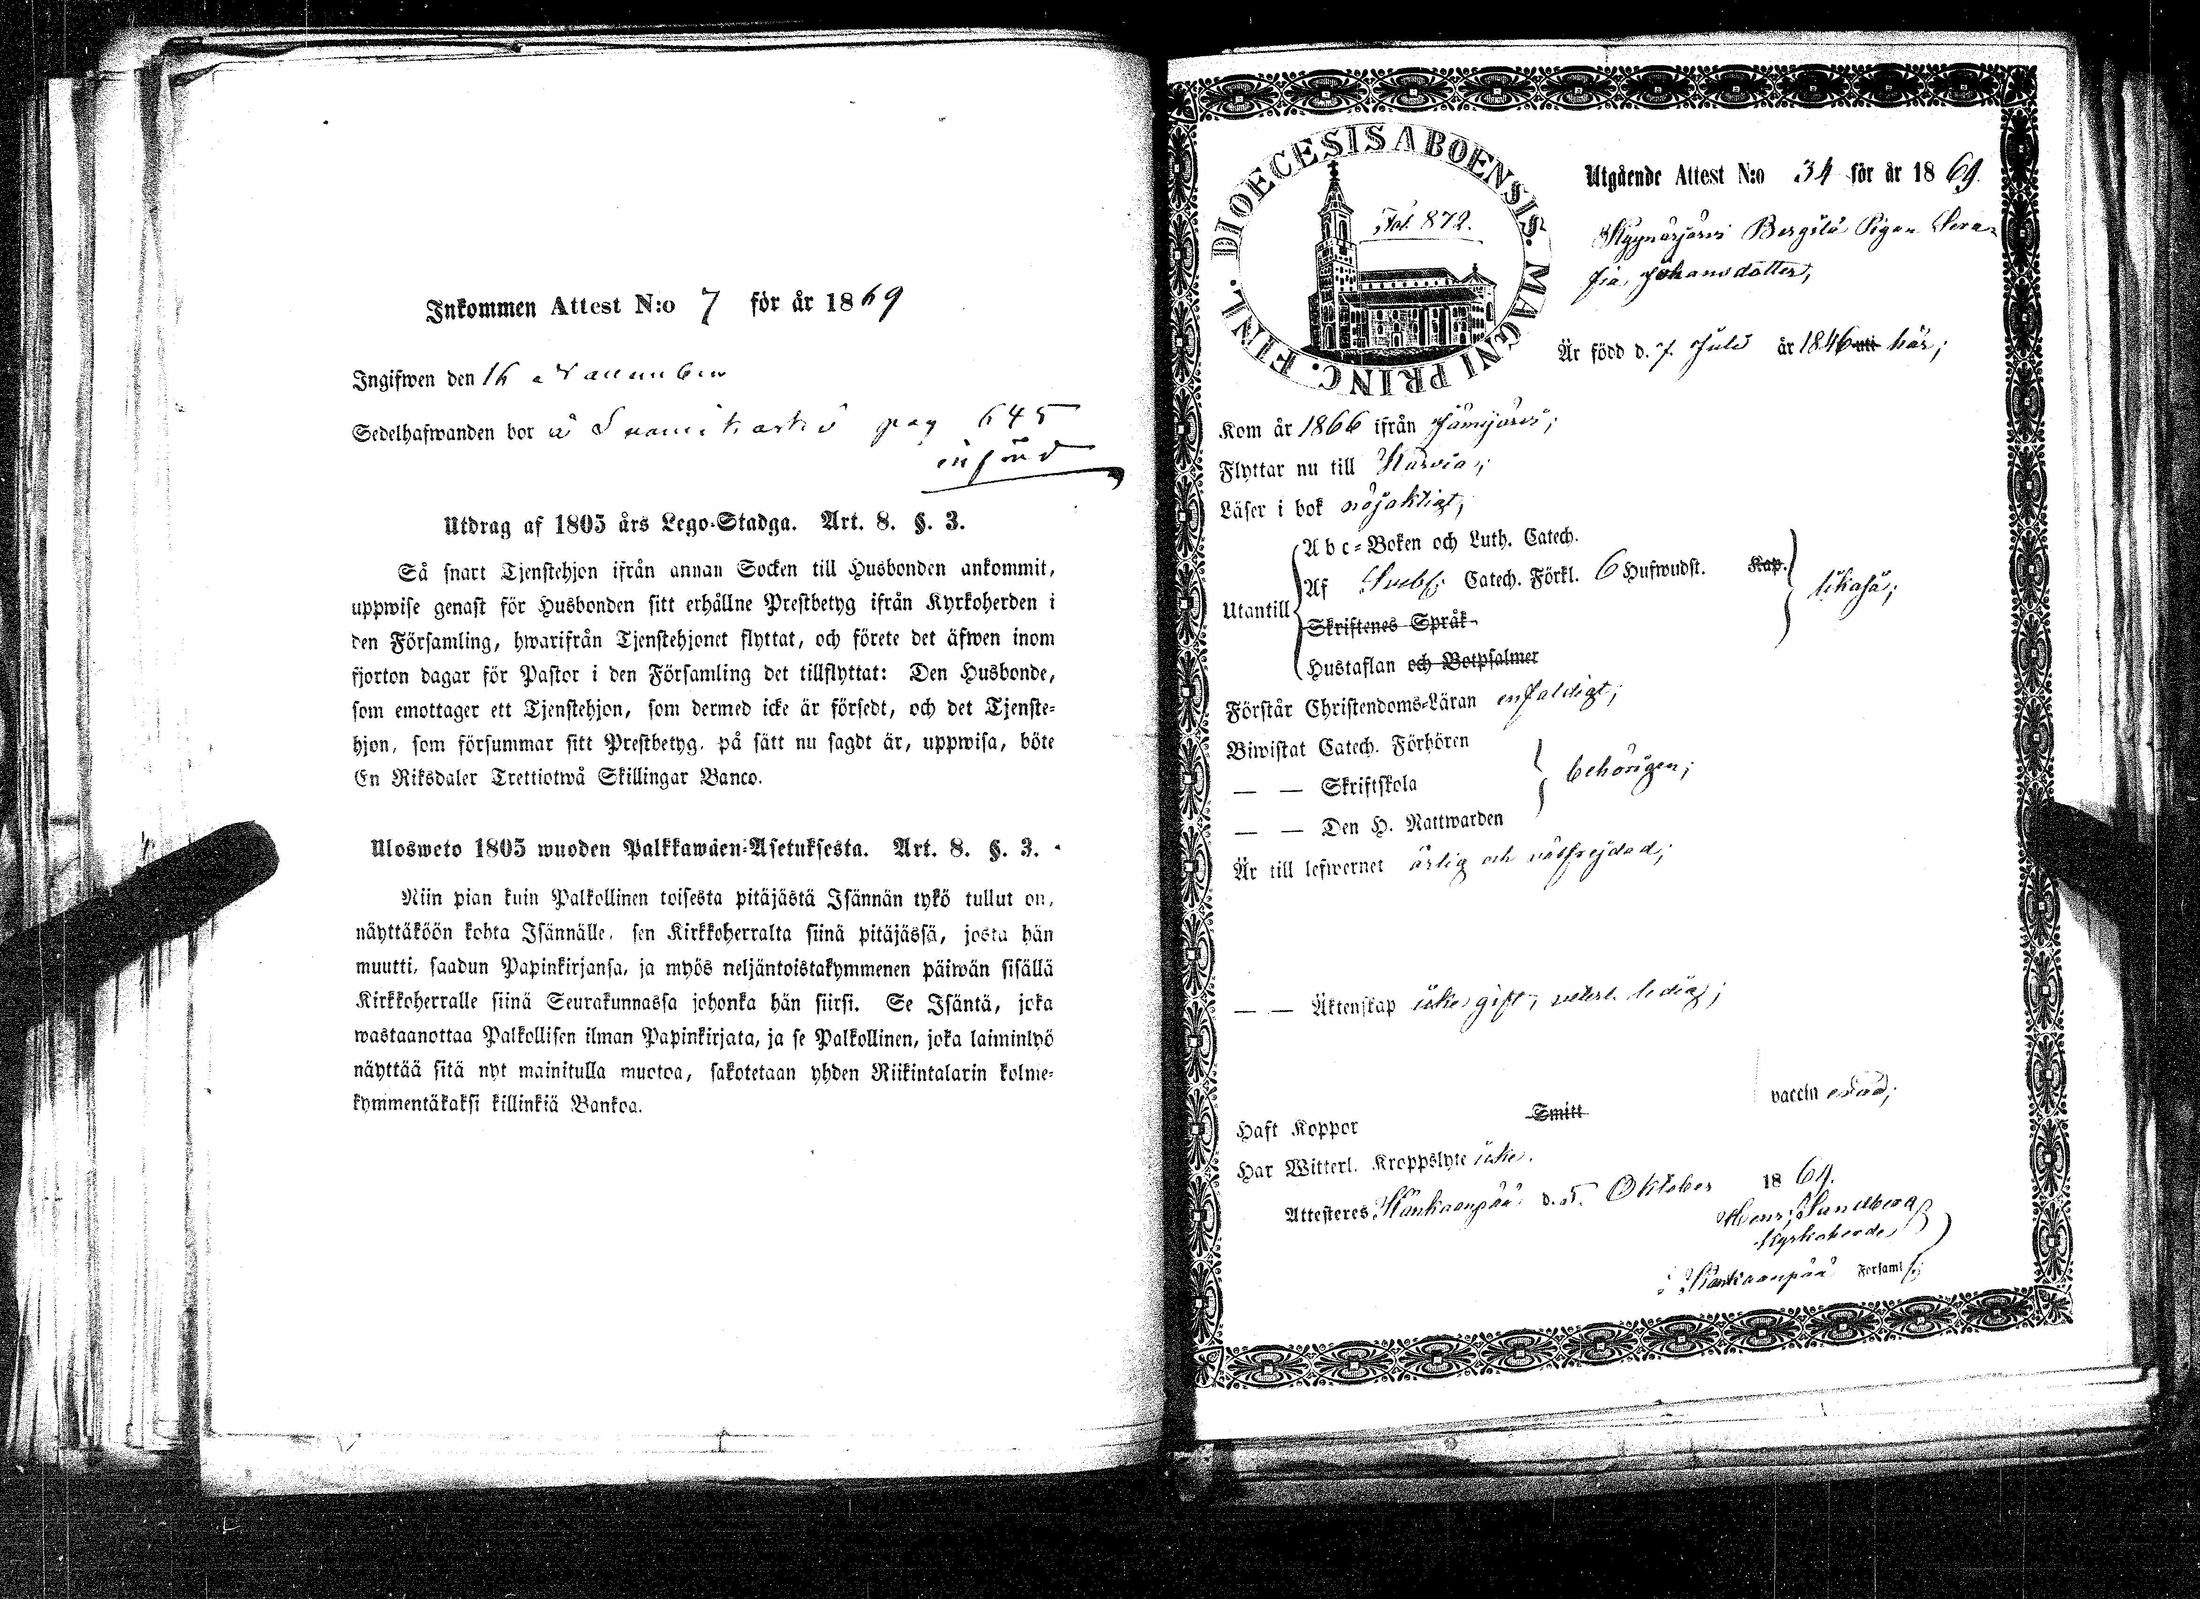 Inkommen Attest N:o 7 för år 1869
Ingifwen den 16 November
Sedelhafwanden bor å pag 645
införd
Utdrag af 1805 års Lego-Stadga. Art. 8. §. 3.
Så snart Tjenstehjon ifrån annan Socken till Husbonden ankommit,
uppwise genast för Husbonden sitt erhållne Prestbetyg ifrån Kyrkoherden i
den Församling, hwarifrån Tjenstehjonet flyttat, och förete det äfwen inom
fjorton dagar för Pastor i den Församling det tillflyttat: Den Husbonde,
som emottager ett Tjenstehjon, som dermed icke är försedt, och det Tjenste-
hjon, som försummar sitt Prestbetyg, på sätt nu sagdt är, uppwisa, böte
En Riksdaler Trettiotwå Skillingar Banco.
Ulosweto 1805 wuoden Palkkawäen-Asetuksesta. Art. 8. §. 3.
Niin pian kuin Palkollinen toisesta pitäjästä Isännän tykö tullut on,
näyttäköön kohta Isännälle, sen Kirkkoherralta siinä pitäjässä, josta hän
muutti, saadun Papinkirjansa, ja myös neljäntoistakymmenen päiwän sisällä
Kirkkoherralle siinä Seurakunnassa johonka hän siirsi. Se Isäntä, joka
wastaanottaa Palkollisen ilman Papinkirjata, ja se Palkollinen, joka laiminlyö
näyttää sitä nyt mainitulla muotoa, sakotetaan yhden Riikintalarin kolme-
kymmentäkaksi killinkiä Bankoa.
DIOECESIS ABOENSIS. MAGNI PRINC. FINL.
Fol. 872.
Utgående Attest N:o 34 för år 1869.
Kyynärjärvi Bergilä Pigan Sera-
fia Johansdotter,
Är född d. 7 Juli år 1846 uti här;
Kom år 1866 ifrån Jämijärvi;
Flyttar nu till Karvia;
Läser i bok nöjaktigt,
Utantill
Abc-Boken och Luth. Catech.
Af Sveb: Catech. Förkl. 6 Hufwudst. Kap.
likaså;
Skriftenes Språk
Hustaflan och Botpsalmer
Förstår Christendoms-Läran enfaldigt;
Biwistat Catech. Förhören
— — Skriftskola
behörigen;
— — Den H. Nattwarden
Är till lefwernet ärlig och välfrejdad;
— — Äktenskap icke gift, veterl. ledig;
Haft Koppor Smitt vaccin erad;
Har Witterl. Kroppslyte icke.
Attesteres Kankaanpää d. 5. Oktober 1869.
Henr. Sundberg
Kyrkoherde
i Kankaanpää Församl.